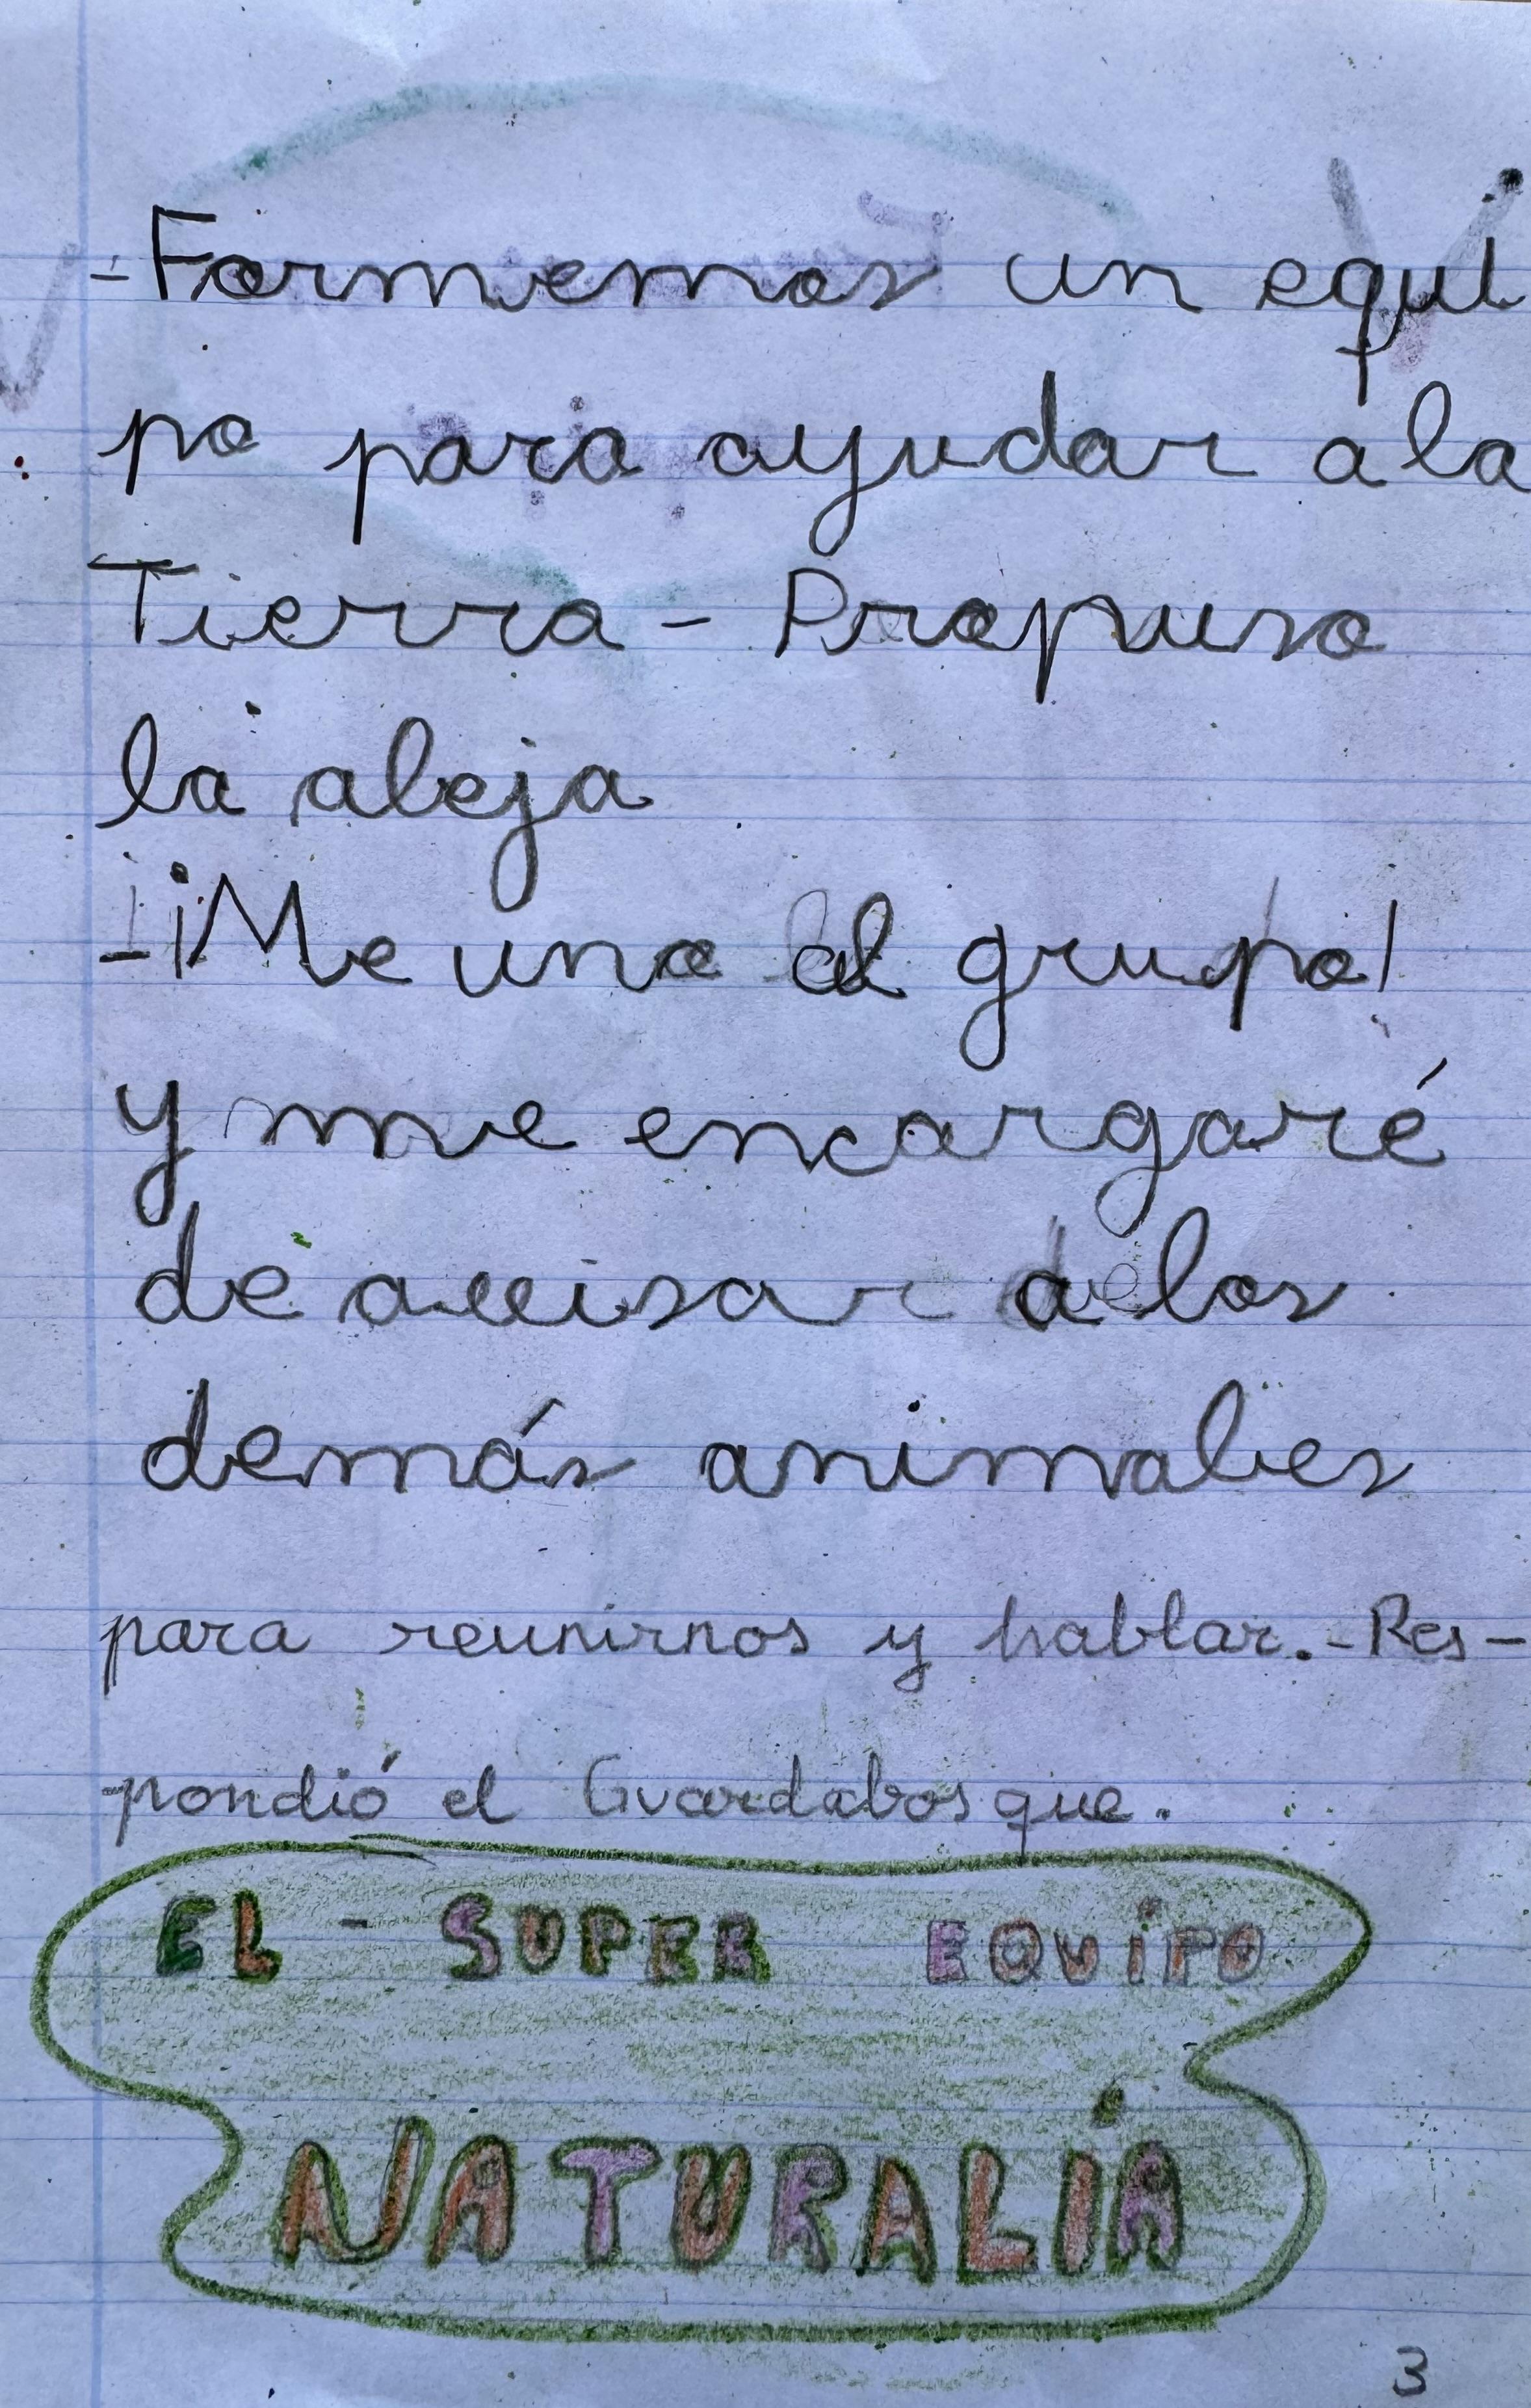 -Formemos un equi
po para ayudar a la
Tierra - Propuso
la abeja
-¡Me uno al grupo!
y me encargaré
de avisar a los
demás animales
para reunirnos y hablar.-Res-
pondió el Guardabosque.
EL - SUPER EQUiPO
NATURALiA
3